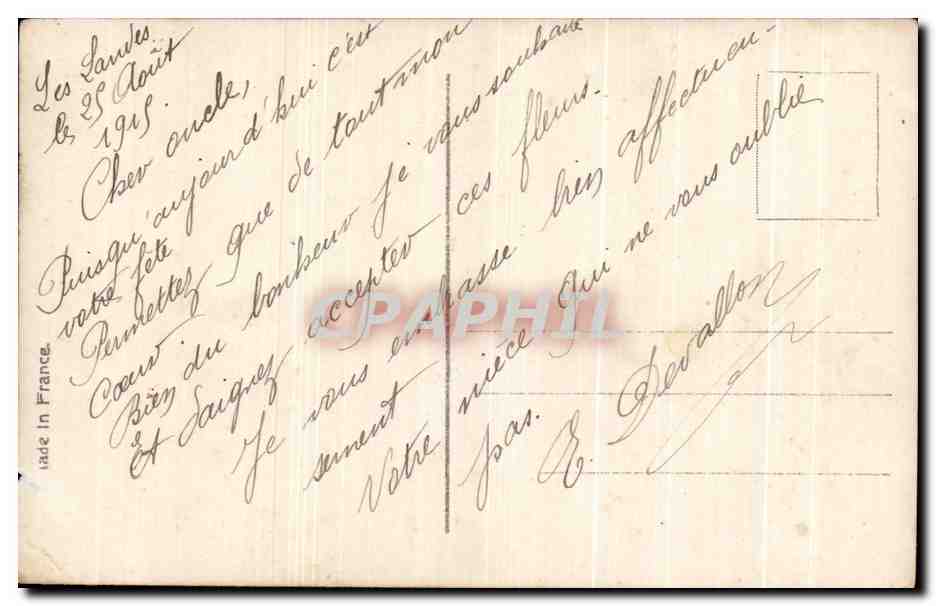 Les Landes
le 25 Août
1915
Cher oncle,
Puisqu'aujourd'hui c'est
votre fête
Permettez que de tout mon
Cœur
Bien du bonheur je vous souhaite
Et Daignez accepter ces fleurs.
Je vous embrasse bien affectueu-
sement
Votre nièce qui ne vous oublie
pas.
E. Devallon
ade In France.
CPAPHIL